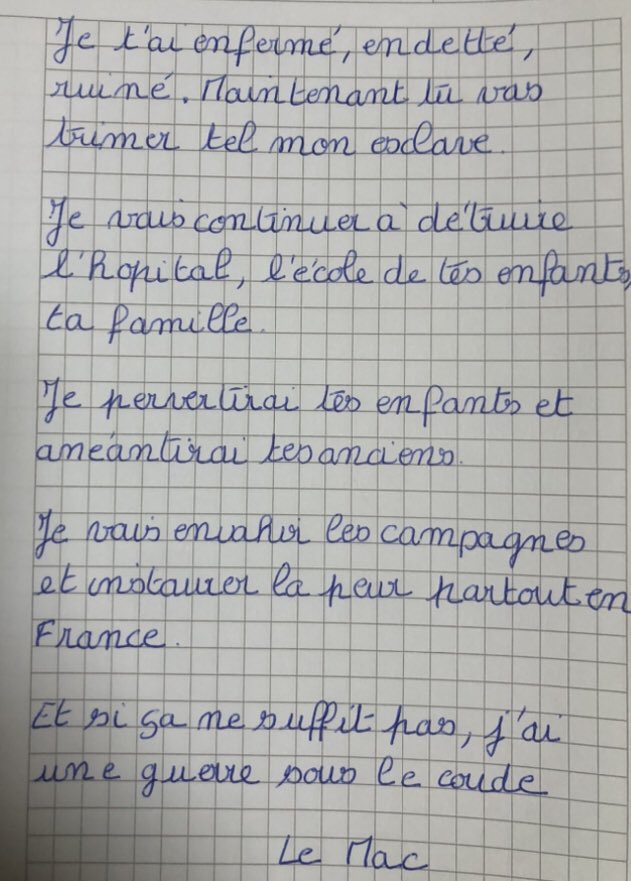 Je t'ai enfermé, endetté,
ruiné. Maintenant tu vas
trimer tel mon esclave.
Je vais continuer à détruire
l'hopital, l'école de tes enfants,
ta famille.
Je pervertirai tes enfants et
anéantirai tes anciens.
Je vais envahir les campagnes
et instaurer la peur partout en
France.
Et si ça ne suffit pas, j'ai
une guerre sous le coude
Le Mac